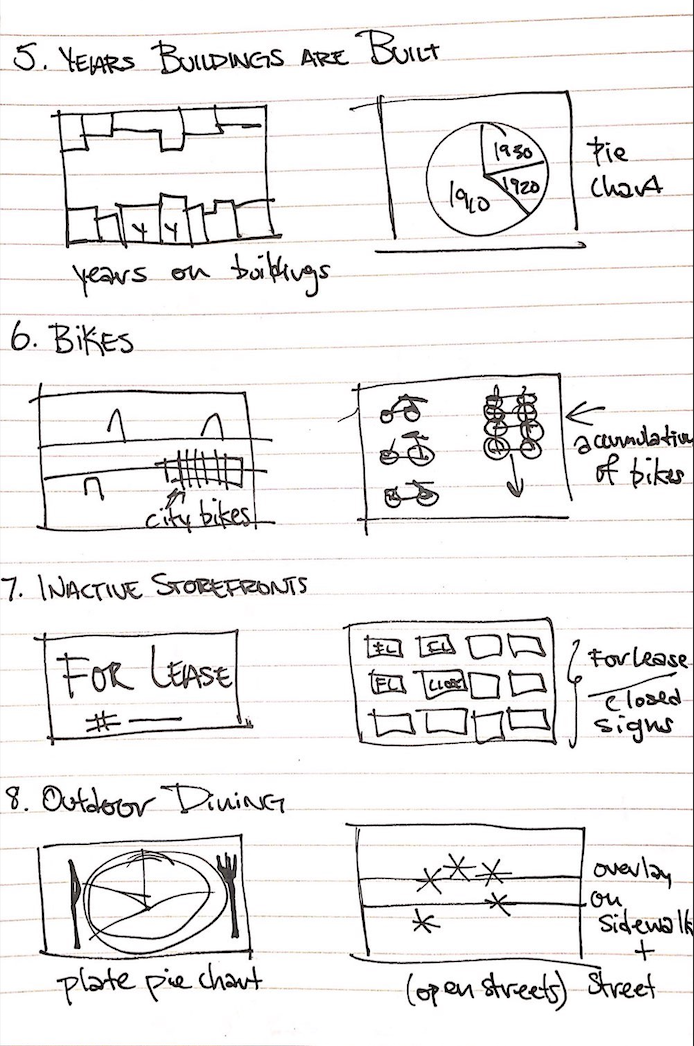 5. YEARS BUILDINGS ARE BUILT
1930
1920
1910
pie
chart
Y Y
years on buildings
6. BIKES
city bikes
accumulation
of bikes
7. INACTIVE STOREFRONTS
FOR LEASE
#
FL FL
FL CLOSE
For Lease
closed
signs
8. OUTDOOR DINING
overlay
on
sidewalk
+
street
plate pie chart
(open streets)